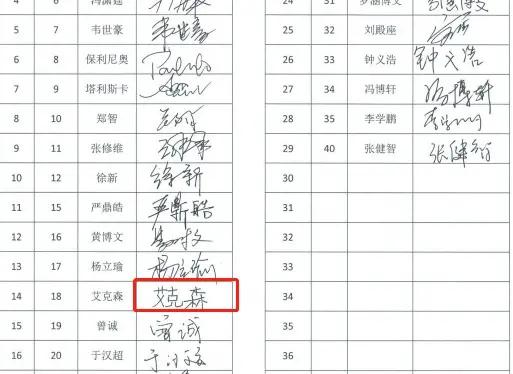 4 6 冯潇霆
5 7 韦世豪 韦世豪
6 8 保利尼奥 Paulinho
7 9 塔利斯卡
8 10 郑智 郑智
9 11 张修维 张修维
10 12 徐新 徐新
11 15 严鼎皓 严鼎皓
12 16 黄博文 黄博文
13 17 杨立瑜 杨立瑜
14 18 艾克森 艾克森
15 19 曾诚 曾诚
16 20 于汉超 于汉超
24 31 罗涵博文
25 32 刘殿座
26 33 钟义浩 钟义浩
27 34 冯博轩 冯博轩
28 35 李学鹏
29 40 张健智 张健智
30
31
32
33
34
35
36